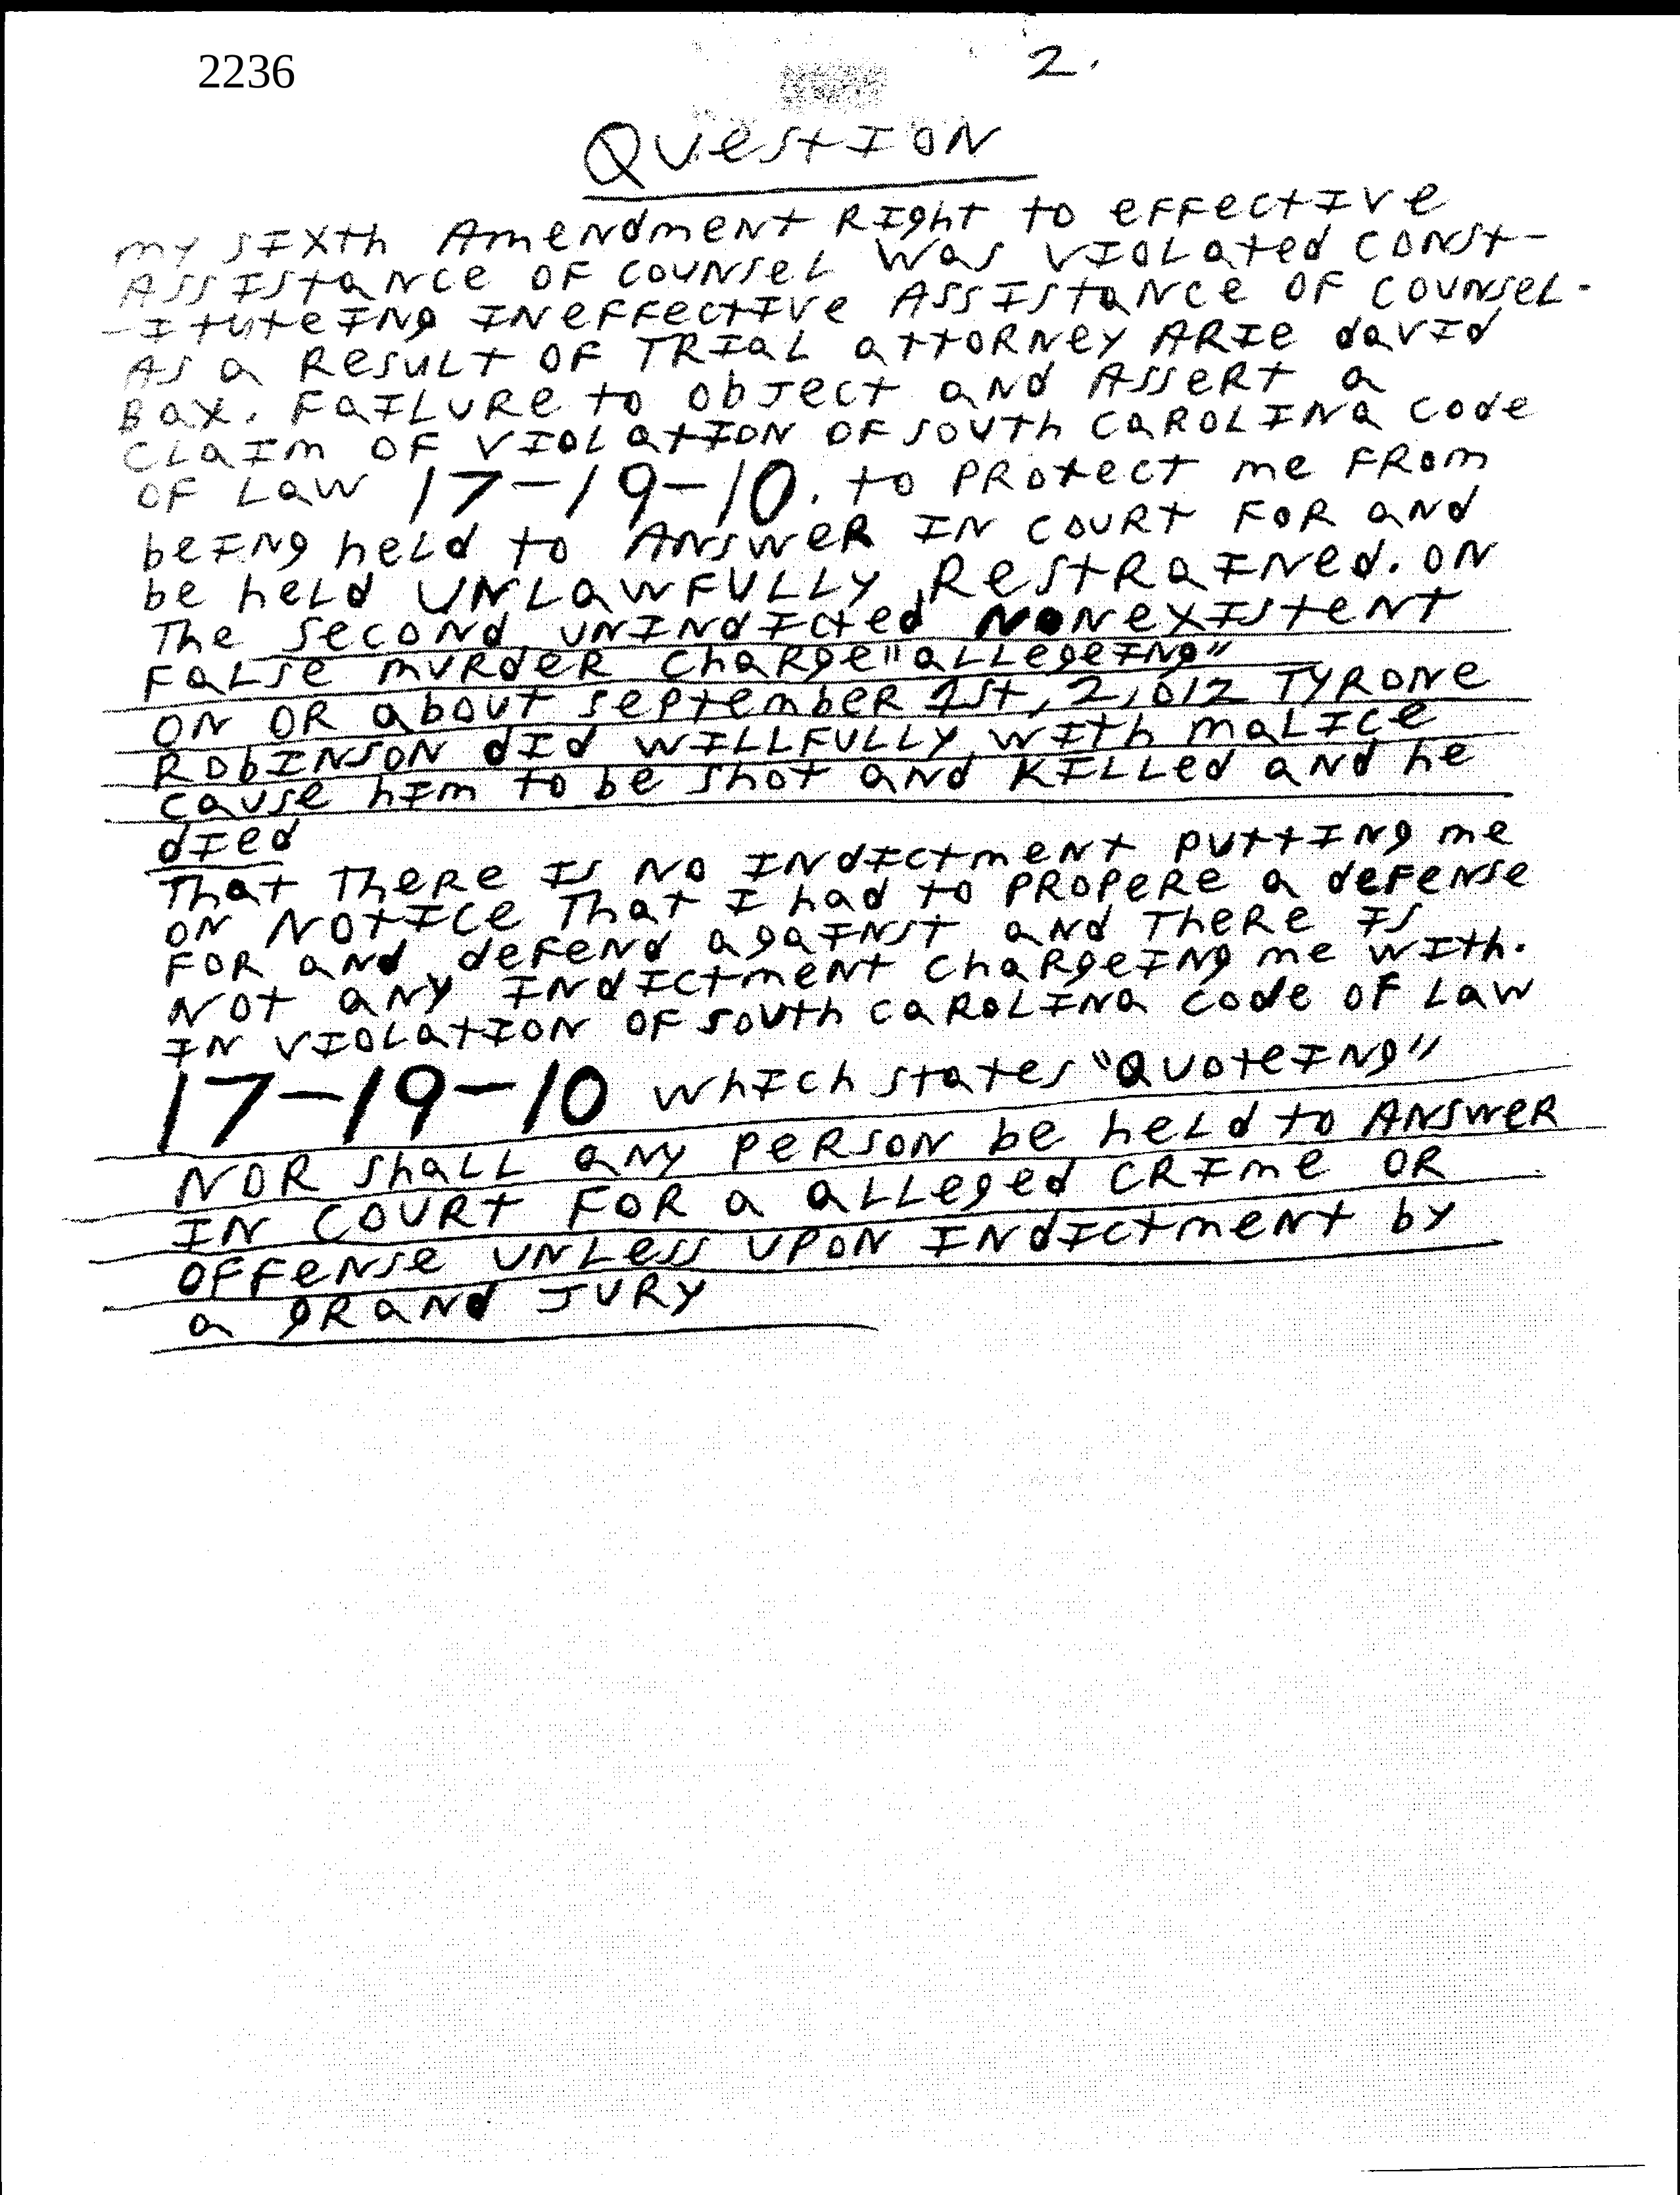 2236
2.
QUestION
my SIXth AmeNdmeNt RIght to eFFectIVe
ASSIStaNce OF COUNSeL was VIOLated CONSt-
-ItuteINg INeFFectIVe ASSIStaNce OF COUNSeL.
AS a ReSULt OF TRIaL attORNey ARIe davId
Bax. FaILURe to ObJect aNd ASSeRt a
CLaIm OF VIOLatION OF SOUth CaROLINa Code
OF Law 17-19-10. to PROtect me FROm
beINg heLd to ANSweR IN COURt FOR aNd
be heLd UNLawFULLy ReStRaINed. ON
The SecONd UNINdIcted NONexIStent
FaLSe mURdeR ChaRge "aLLegeINg"
ON OR abOUt SePtembeR 1St, 2,012 TyRONe
RObINSON dId wILLFULLy wIth maLIce
caUSe hIm to be Shot aNd KILLed aNd he
dIed
That TheRe IS NO INdIctmeNt PUttINg me
ON NOtIce That I had to PROPeRe a deFeNSe
FOR aNd deFeNd agaINSt aNd TheRe IS
NOt aNy INdIctmeNt ChaRgeINg me wIth.
IN VIOLatION OF SOUth CaROLINa Code OF Law
17-19-10 whIch StateS "QUOteINg"
NOR ShaLL aNy PeRSON be heLd to ANSweR
IN COURt FOR a aLLeged CRIme OR
OFFeNSe UNLeSS UPON INdIctmeNt by
a gRaNd JURy